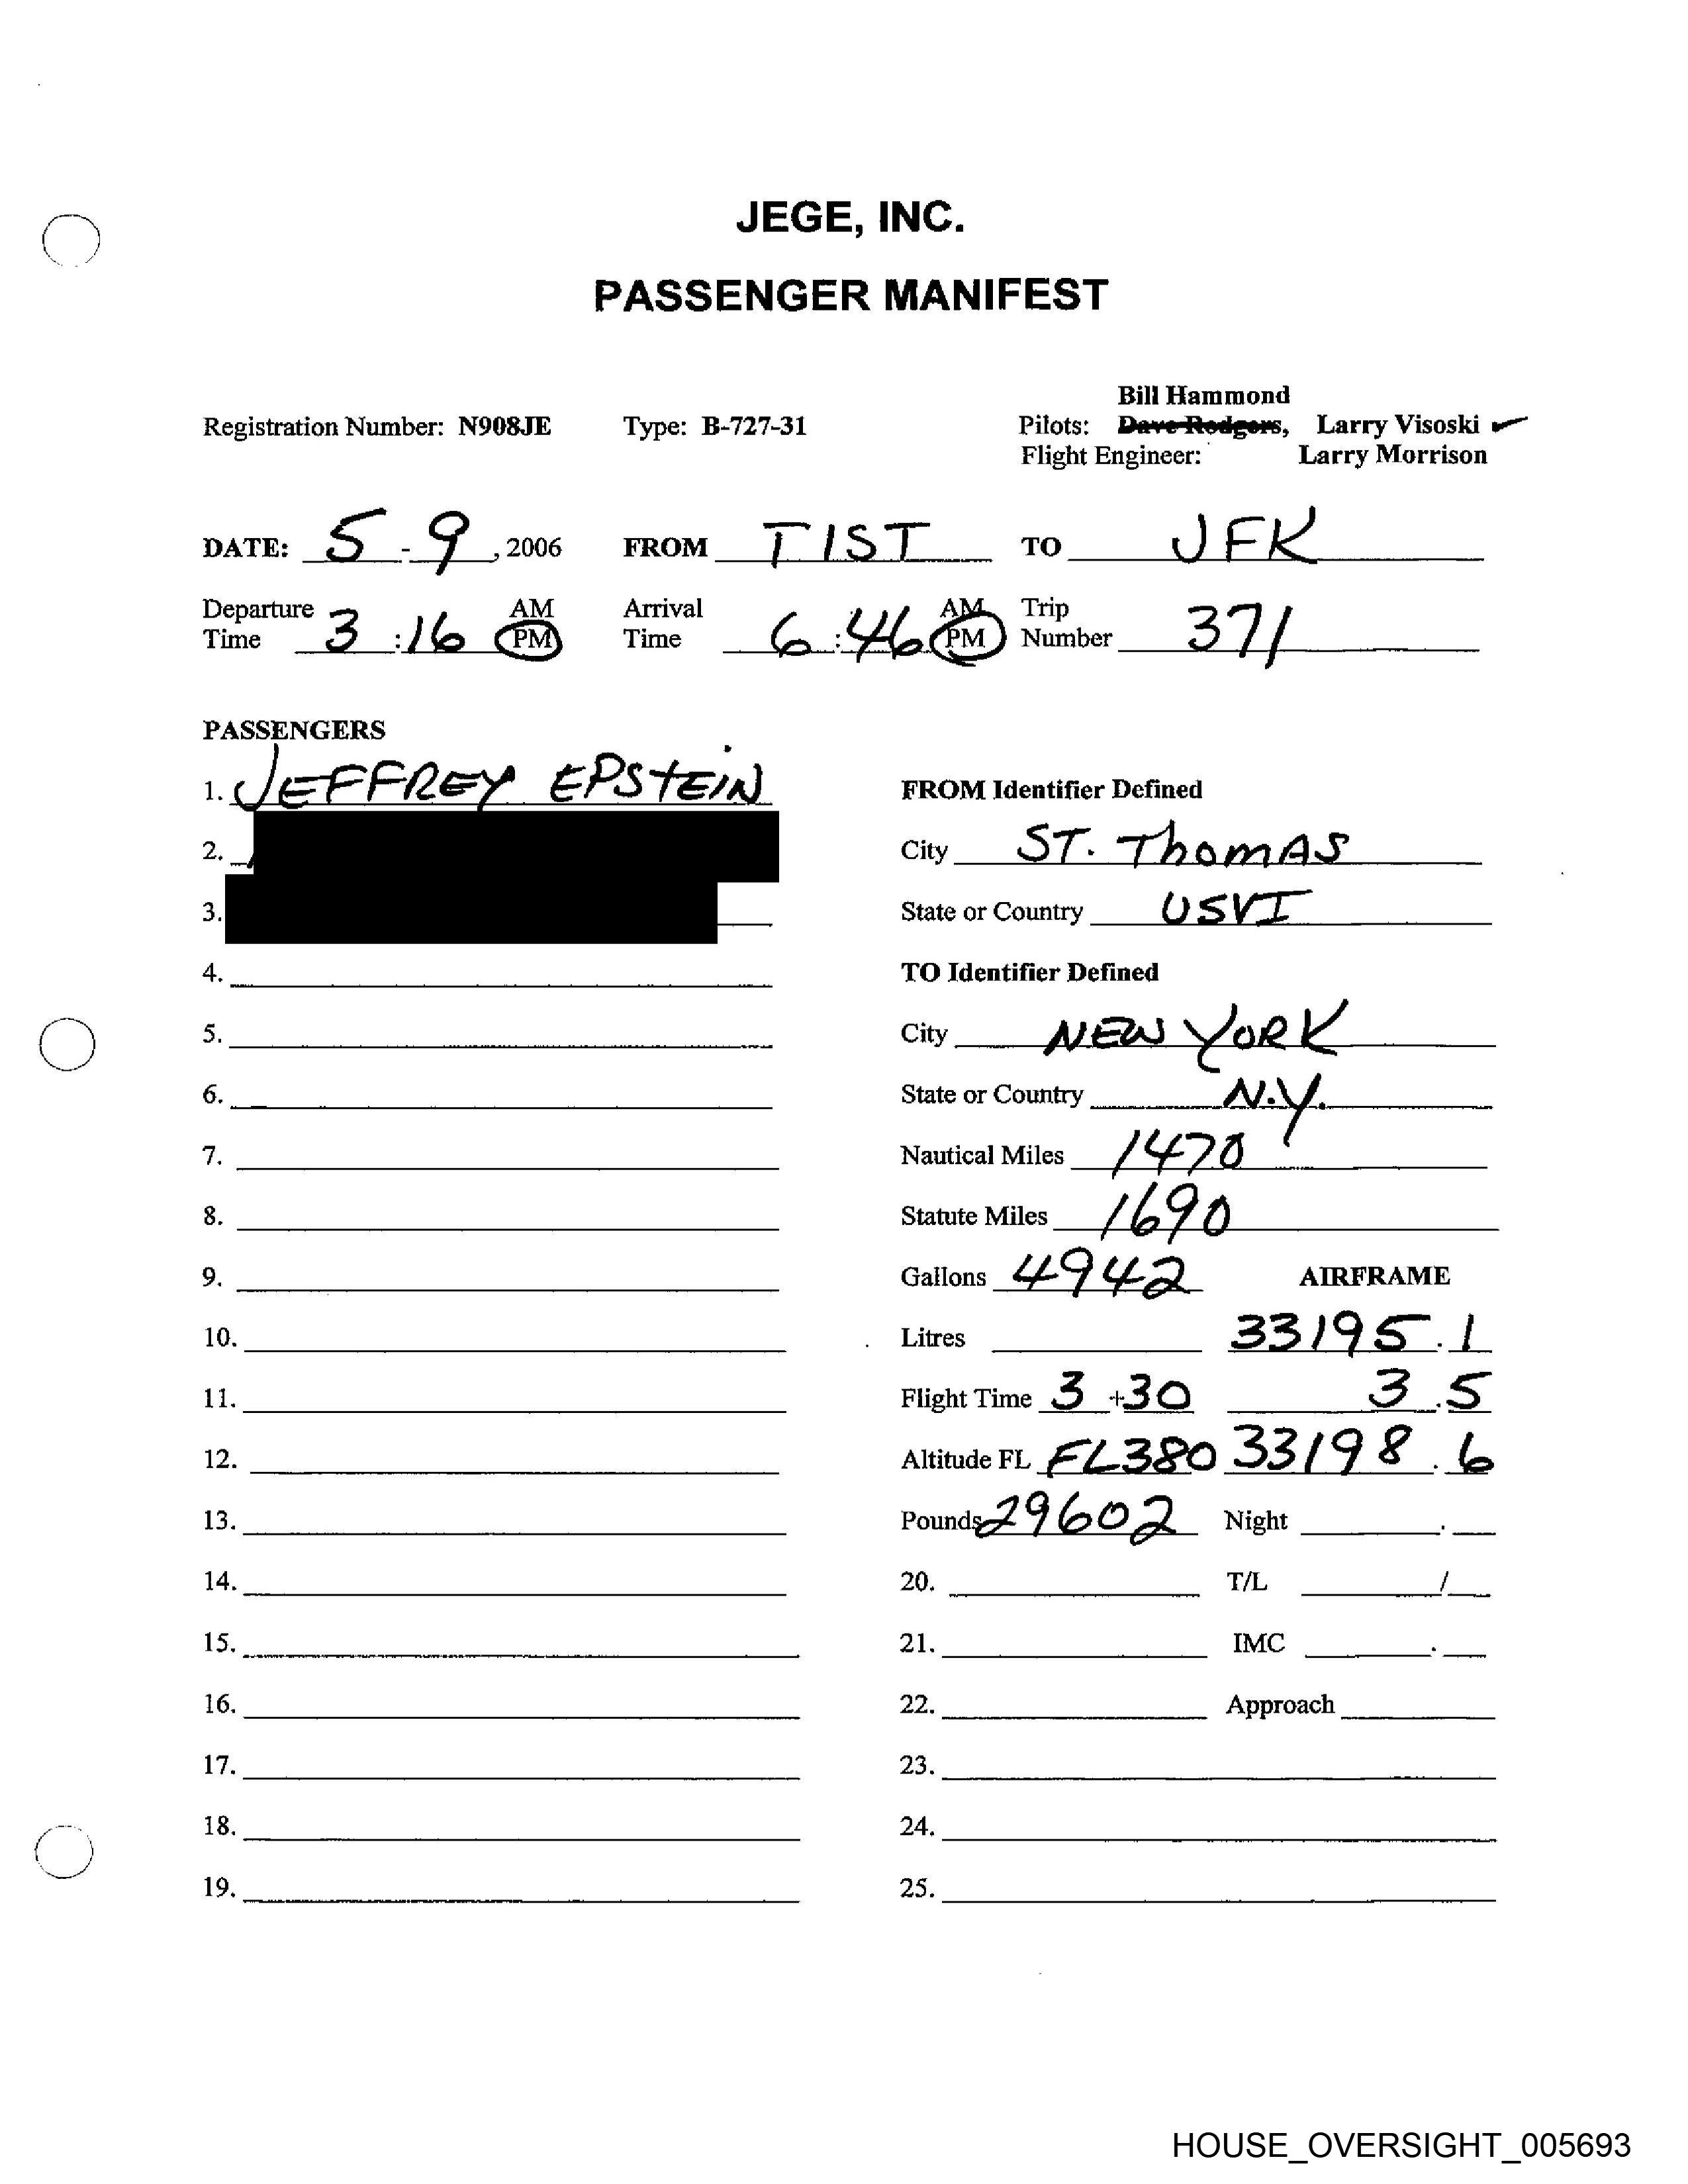 JEGE, INC.
PASSENGER MANIFEST
Bill Hammond
Registration Number: N908JE Type: B-727-31 Pilots: Dave Rodgers, Larry Visoski ✓
Flight Engineer: Larry Morrison
DATE: 5 - 9, 2006 FROM TIST TO JFK
Departure AM Arrival AM Trip
Time 3 :16 PM Time 6:46 PM Number 371
PASSENGERS
1. JEFFREY EPSTEIN FROM Identifier Defined
2. City ST. ThomAS
3. State or Country USVI
4. TO Identifier Defined
5. City NEW YORK
6. State or Country N.Y.
7. Nautical Miles 1470
8. Statute Miles 1690
9. Gallons 4942 AIRFRAME
10. Litres 33195.1
11. Flight Time 3 +30 3.5
12. Altitude FL FL380 33198.6
13. Pounds 29602 Night .
14. 20. T/L /
15. 21. IMC .
16. 22. Approach
17. 23.
18. 24.
19. 25.
HOUSE_OVERSIGHT_005693